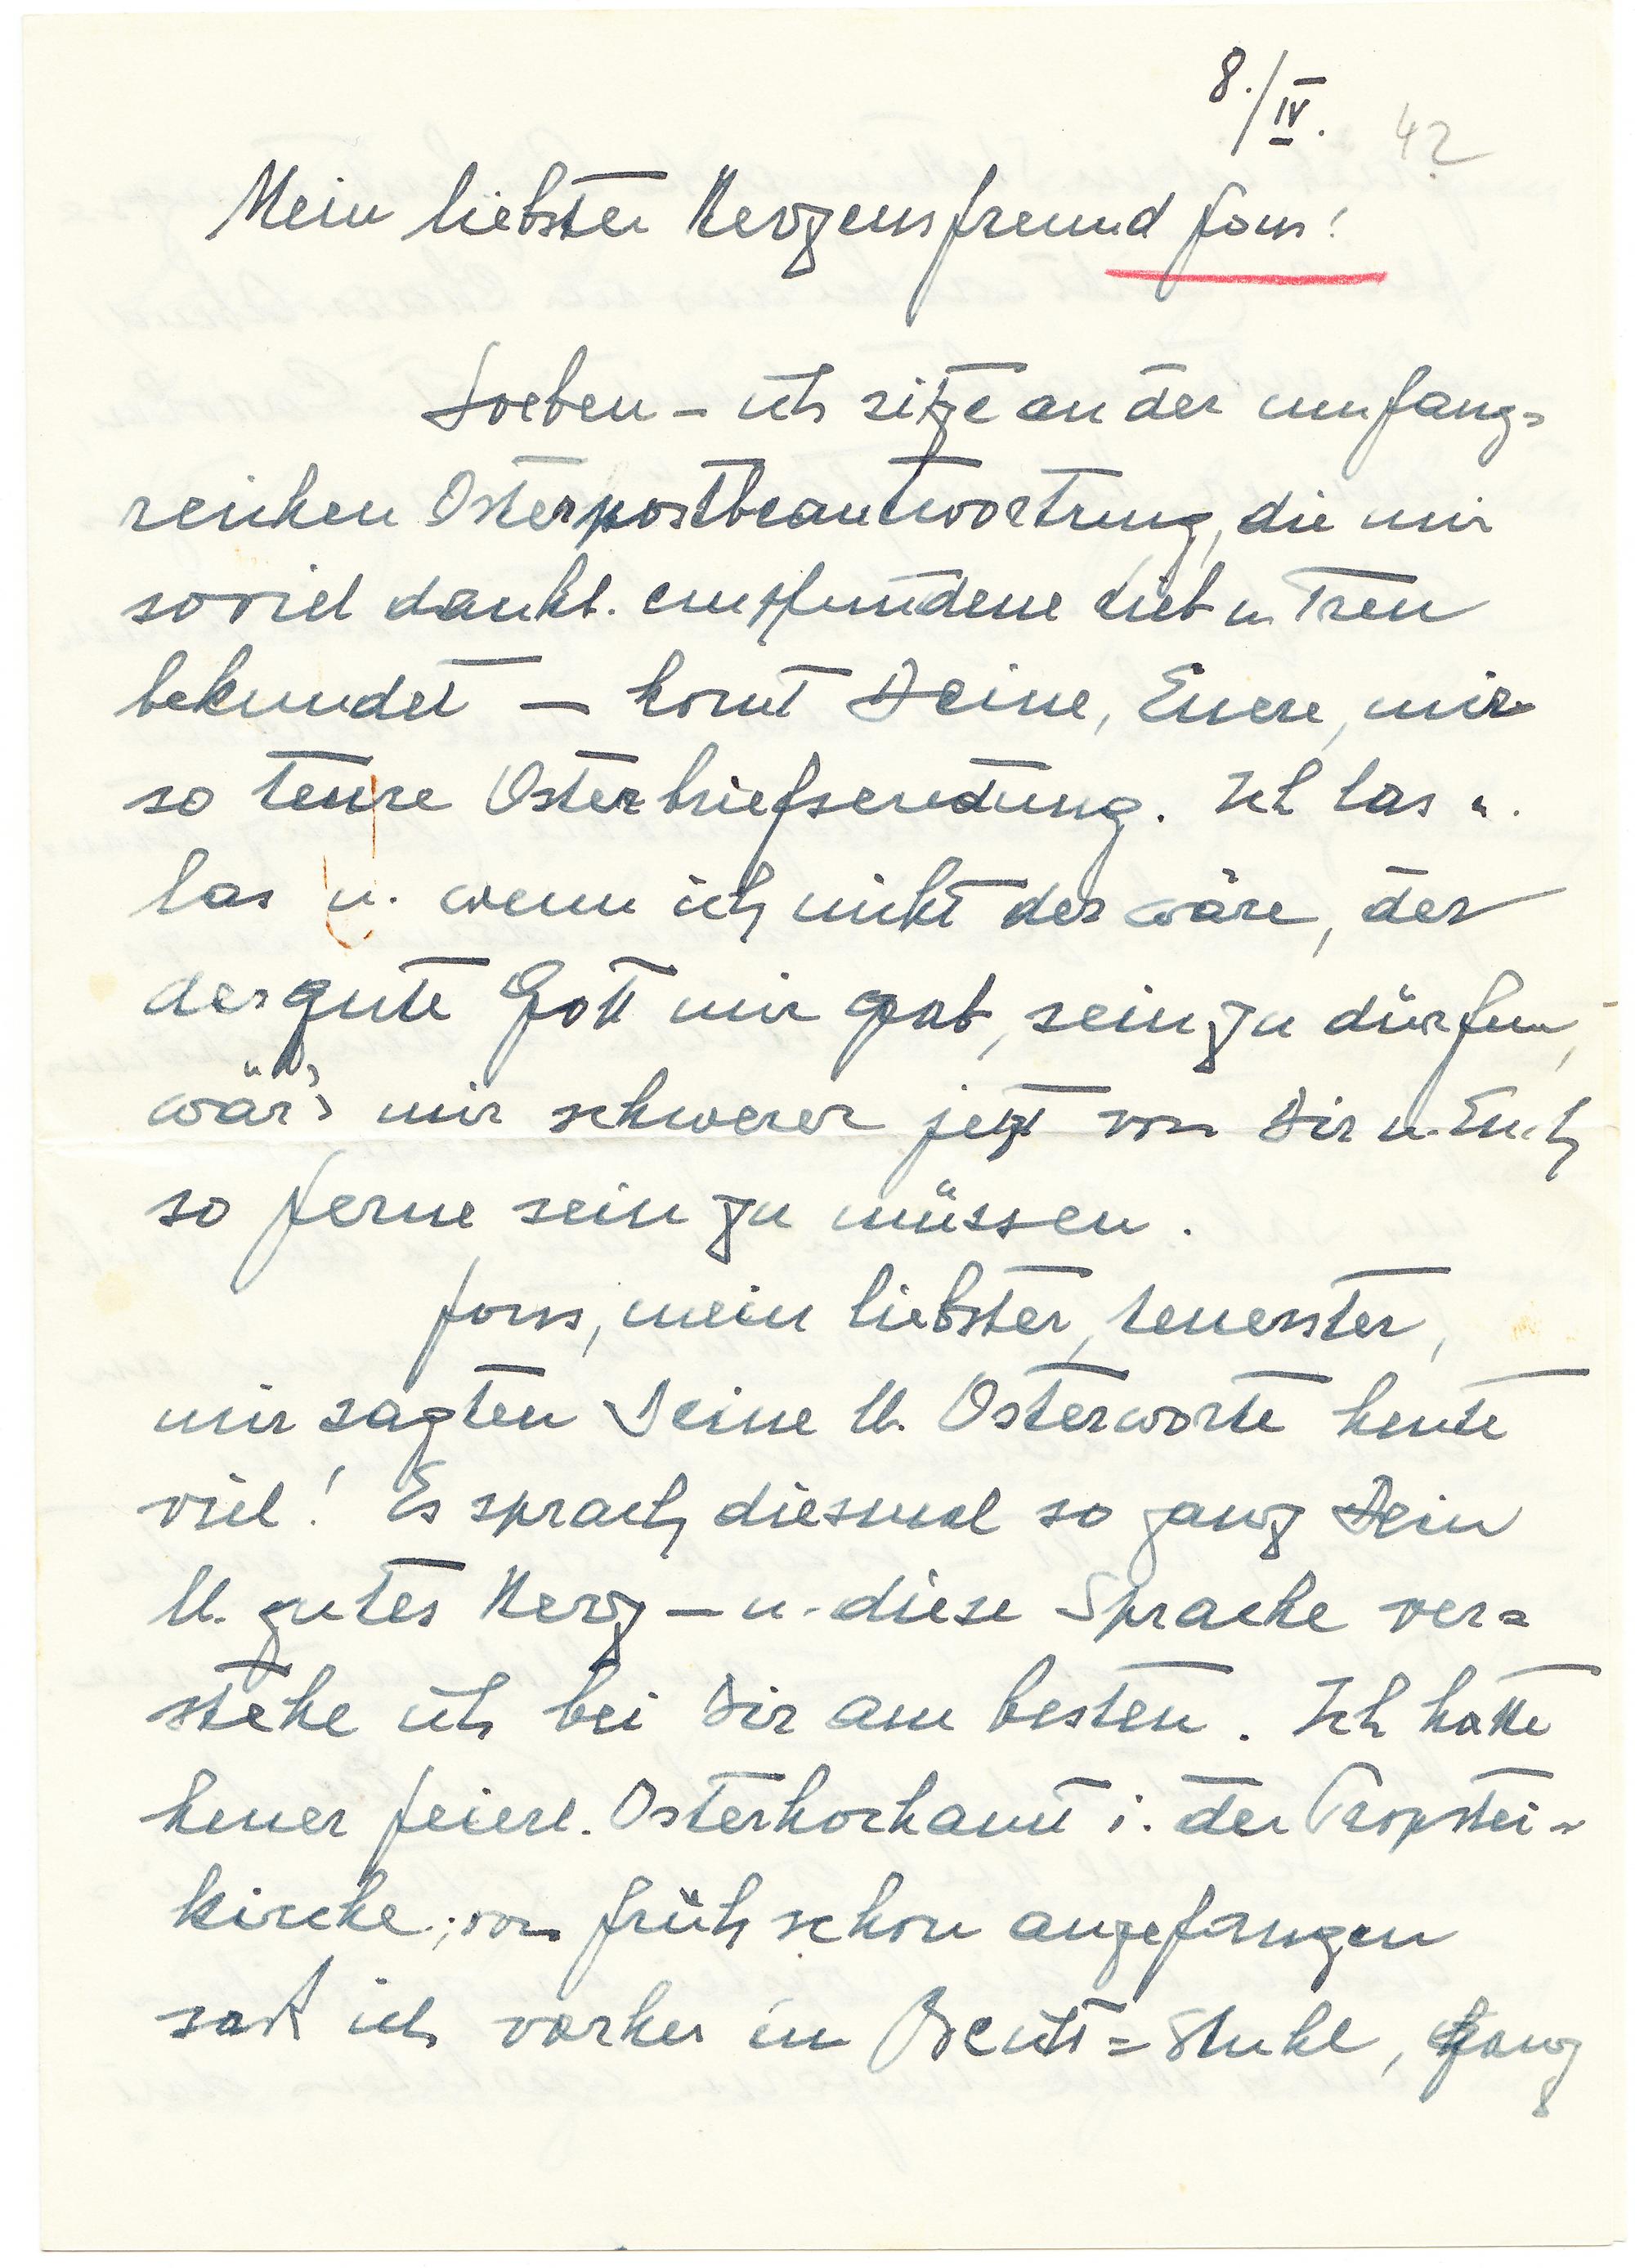 8./IV. 42
Mein liebster Herzensfreund Fons!
Soeben – ich sitze an der umfang=
reichen Osterpostbeantwortung, die mir
soviel dankb. empfundene Lieb u. Treu
bekundet – komt Deine, Euere, mir
so teure Osterbriefsendung. Ich las u.
las u. wenn ich nicht der wäre, der
der gute Gott mir gab, sein zu dürfen,
wär's mir schwerer jetzt von Dir u. Euch
so ferne sein zu müssen.
Fons, mein liebster, teuerster,
mir sagten Deine lb. Osterworte heute
viel! Es sprach diesmal so ganz Dein
lb. gutes Herz – u. diese Sprache ver=
stehe ich bei Dir am besten. Ich hatte
heuer feierl. Osterhochamt i. der Propstei=
kirche; von früh schon angefangen
saß ich vorher im Beicht=Stuhl, ganz